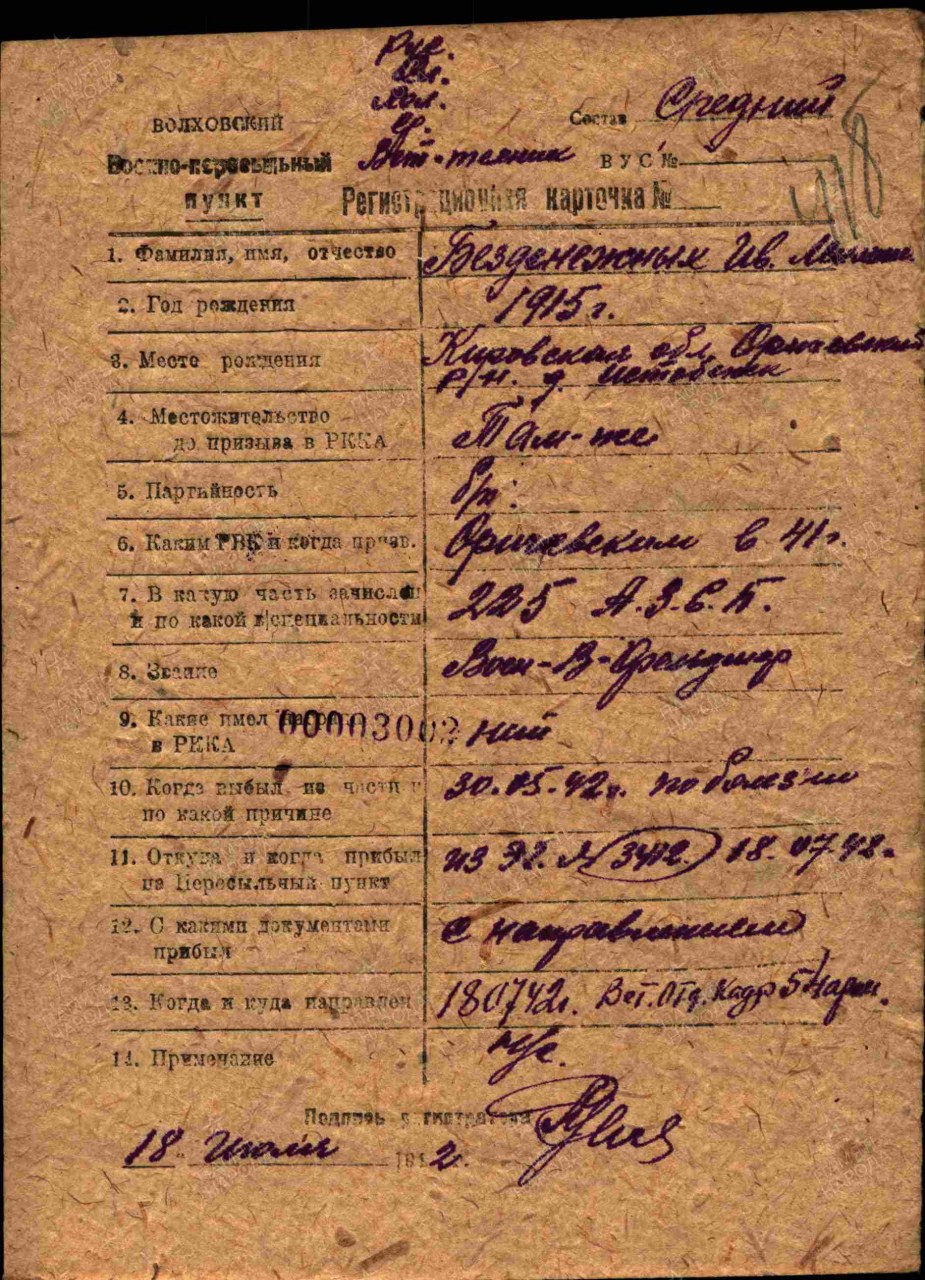 Рус.
ВОЛХОВСКИЙ
Состав Средний
Военно-пересыльный
Вет-техник
ВУС №
пункт
Регистрационная карточка №
1. Фамилия, имя, отчество Безденежных Ив.
2. Год рождения 1915 г.
3. Место рождения Кировская обл. Оричевский
р/н. д. Истобенск
4. Местожительство
до призыва в РККА Там-же
5. Партийность б/п.
6. Каким РВК и когда призв. Оричевским в 41 г.
7. В какую часть зачислен
и по какой специальности 225 А.З.С.П.
8. Звание Воен-В-Фельдшер
9. Какие имел награды
в РККА 00003002 нит
10. Когда выбыл из части и
по какой причине 30.05.42 г. по болезни
11. Откуда и когда прибыл
на Пересыльный пункт из ЭГ. № 3412. 18.07.42.
12. С какими документами
прибыл с направлением
13. Когда и куда направлен 180742 г. Вет. Отд. Кадр 54 арм.
14. Примечание
Подпись регистратора
18 Июля 1942 г.